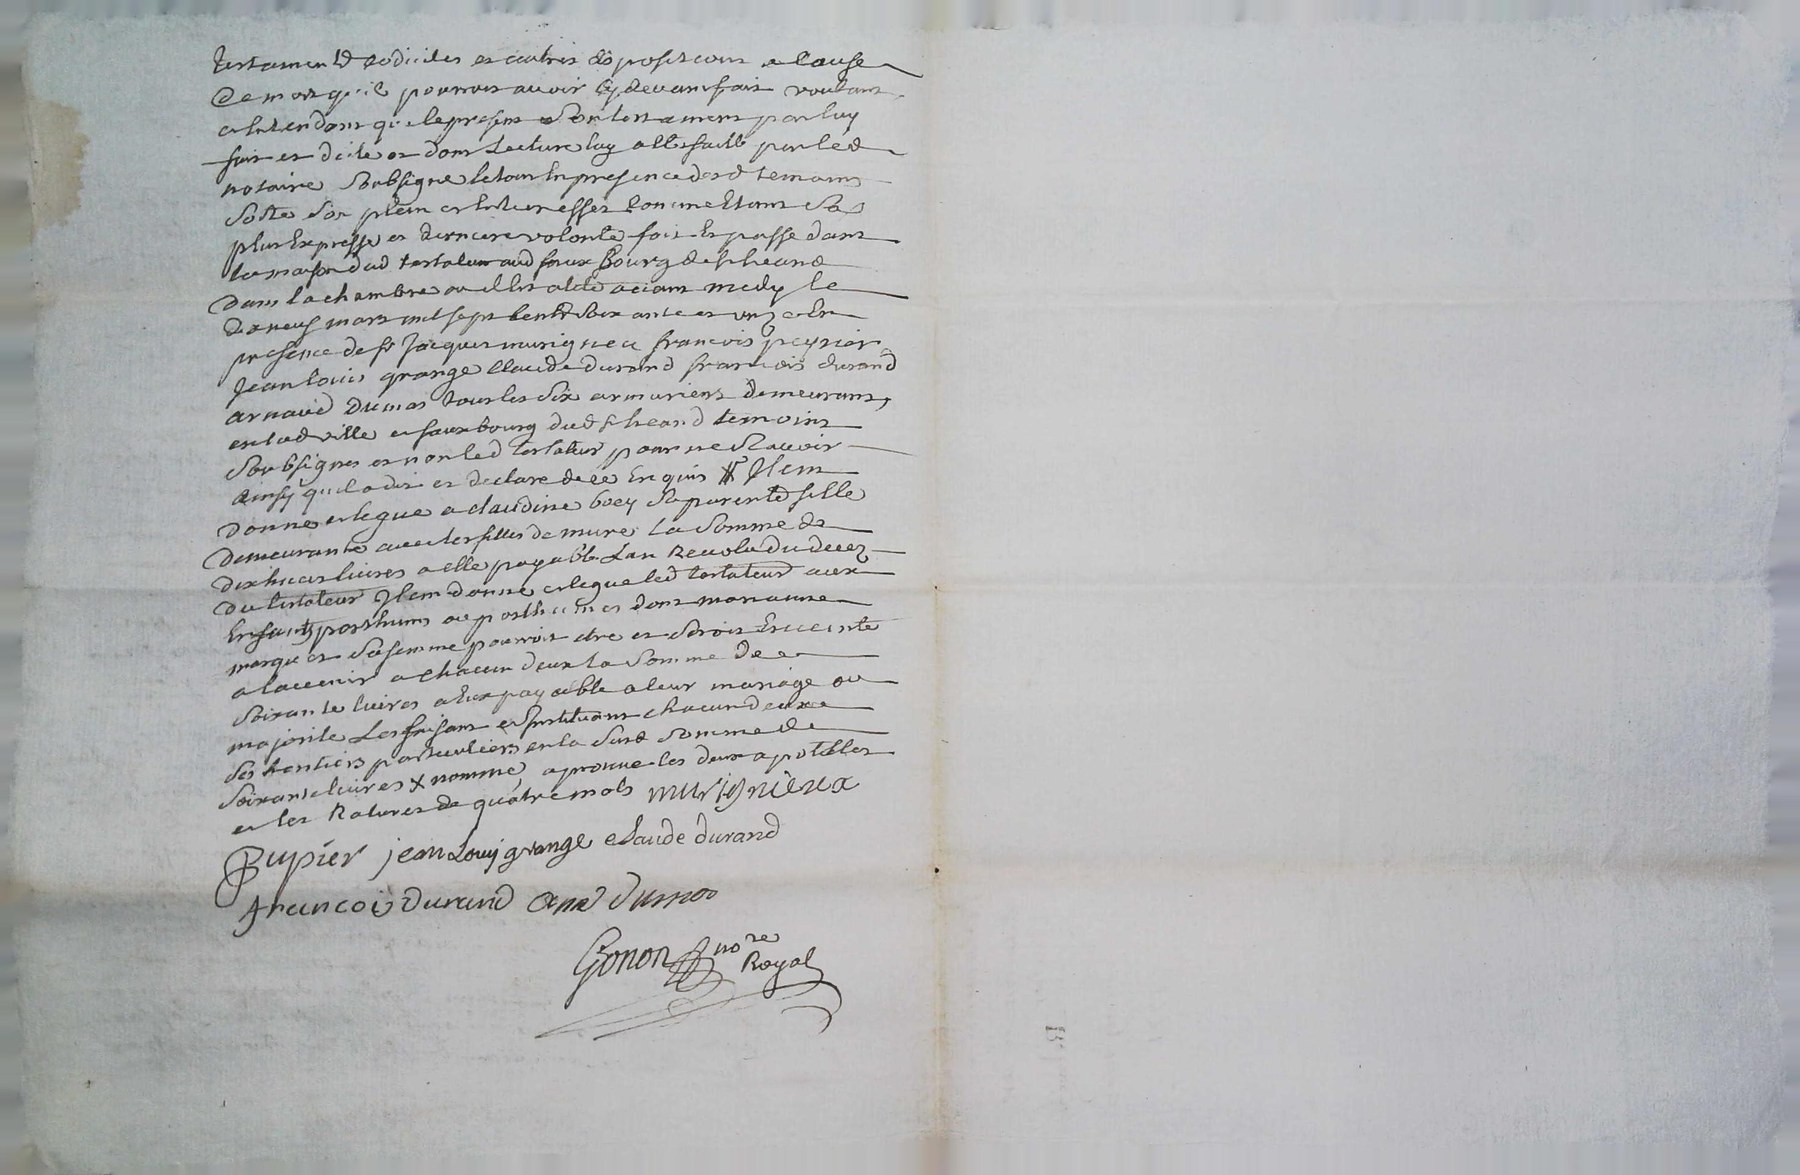 testament codiciles et autres dispositions a cause
de mort qu'il pourroit avoir cy devant fait voulant
et entendant que le present son testament par luy
fait et dicté et dont lecture luy a été faitte par led
notaire soubsigné le tout en presence desd temoins
sorte son plein et entier effet comme etant sa
plus expresse et derniere volonté fait et passé dans
la maison dud testateur aud faux bourg de st heand
dans la chambre ou il est alité avant midy le
dixneuf mars mil sept cents soixante et unze en
presence de sr Jacques murigneu francois peyrier
Jean louis grange Claude durand francois durand
arnaud dumas tous les six armuriers demeurants
en lad ville et fauxbourg dud st heand temoins
soubsignes et non led testateur pour ne sçavoir
ainsy qu'il a dit et declaré de ce enquis # Item
donne et legue a claudine boey sa parente fille
demeurante avec les filles de mure la somme de
dixhuit livres a elle payable l'an revolu du decez
du testateur Item donne et legue led testateur aux
Enfants posthums ou posthumes dont marianne
marque sa femme pourroit etre et seroit enceinte
a l'avenir a chacun d'eux la somme de
soixante livres a eux payable a leur mariage ou
majorité les faisant et instituant chacun deux
ses heritiers particuliers en la susd somme de
soixante livres x nommé, aprouvé les deux apostilles
et les ratures de quatre mots murigneux
Pupier jean Louis grange claude durand
francois durand dumas
Gonon nore
Royal
B